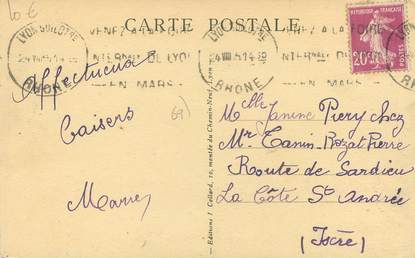 10 €
CARTE POSTALE
LYON
VENEZ A LA FOIRE
INTERNle DE LYON
EN MARS
RHONE
RHONE
REPUBLIQUE FRANÇAISE
20c
Affectueux
baisers
(69)
Editions J. Cellard, 10, montée du Chemin-Neuf, Lyon
Melle Janine Piery chez
Mr Tanin-Rozat Pierre
Route de Sardieu
La Côte St André
(Isère)